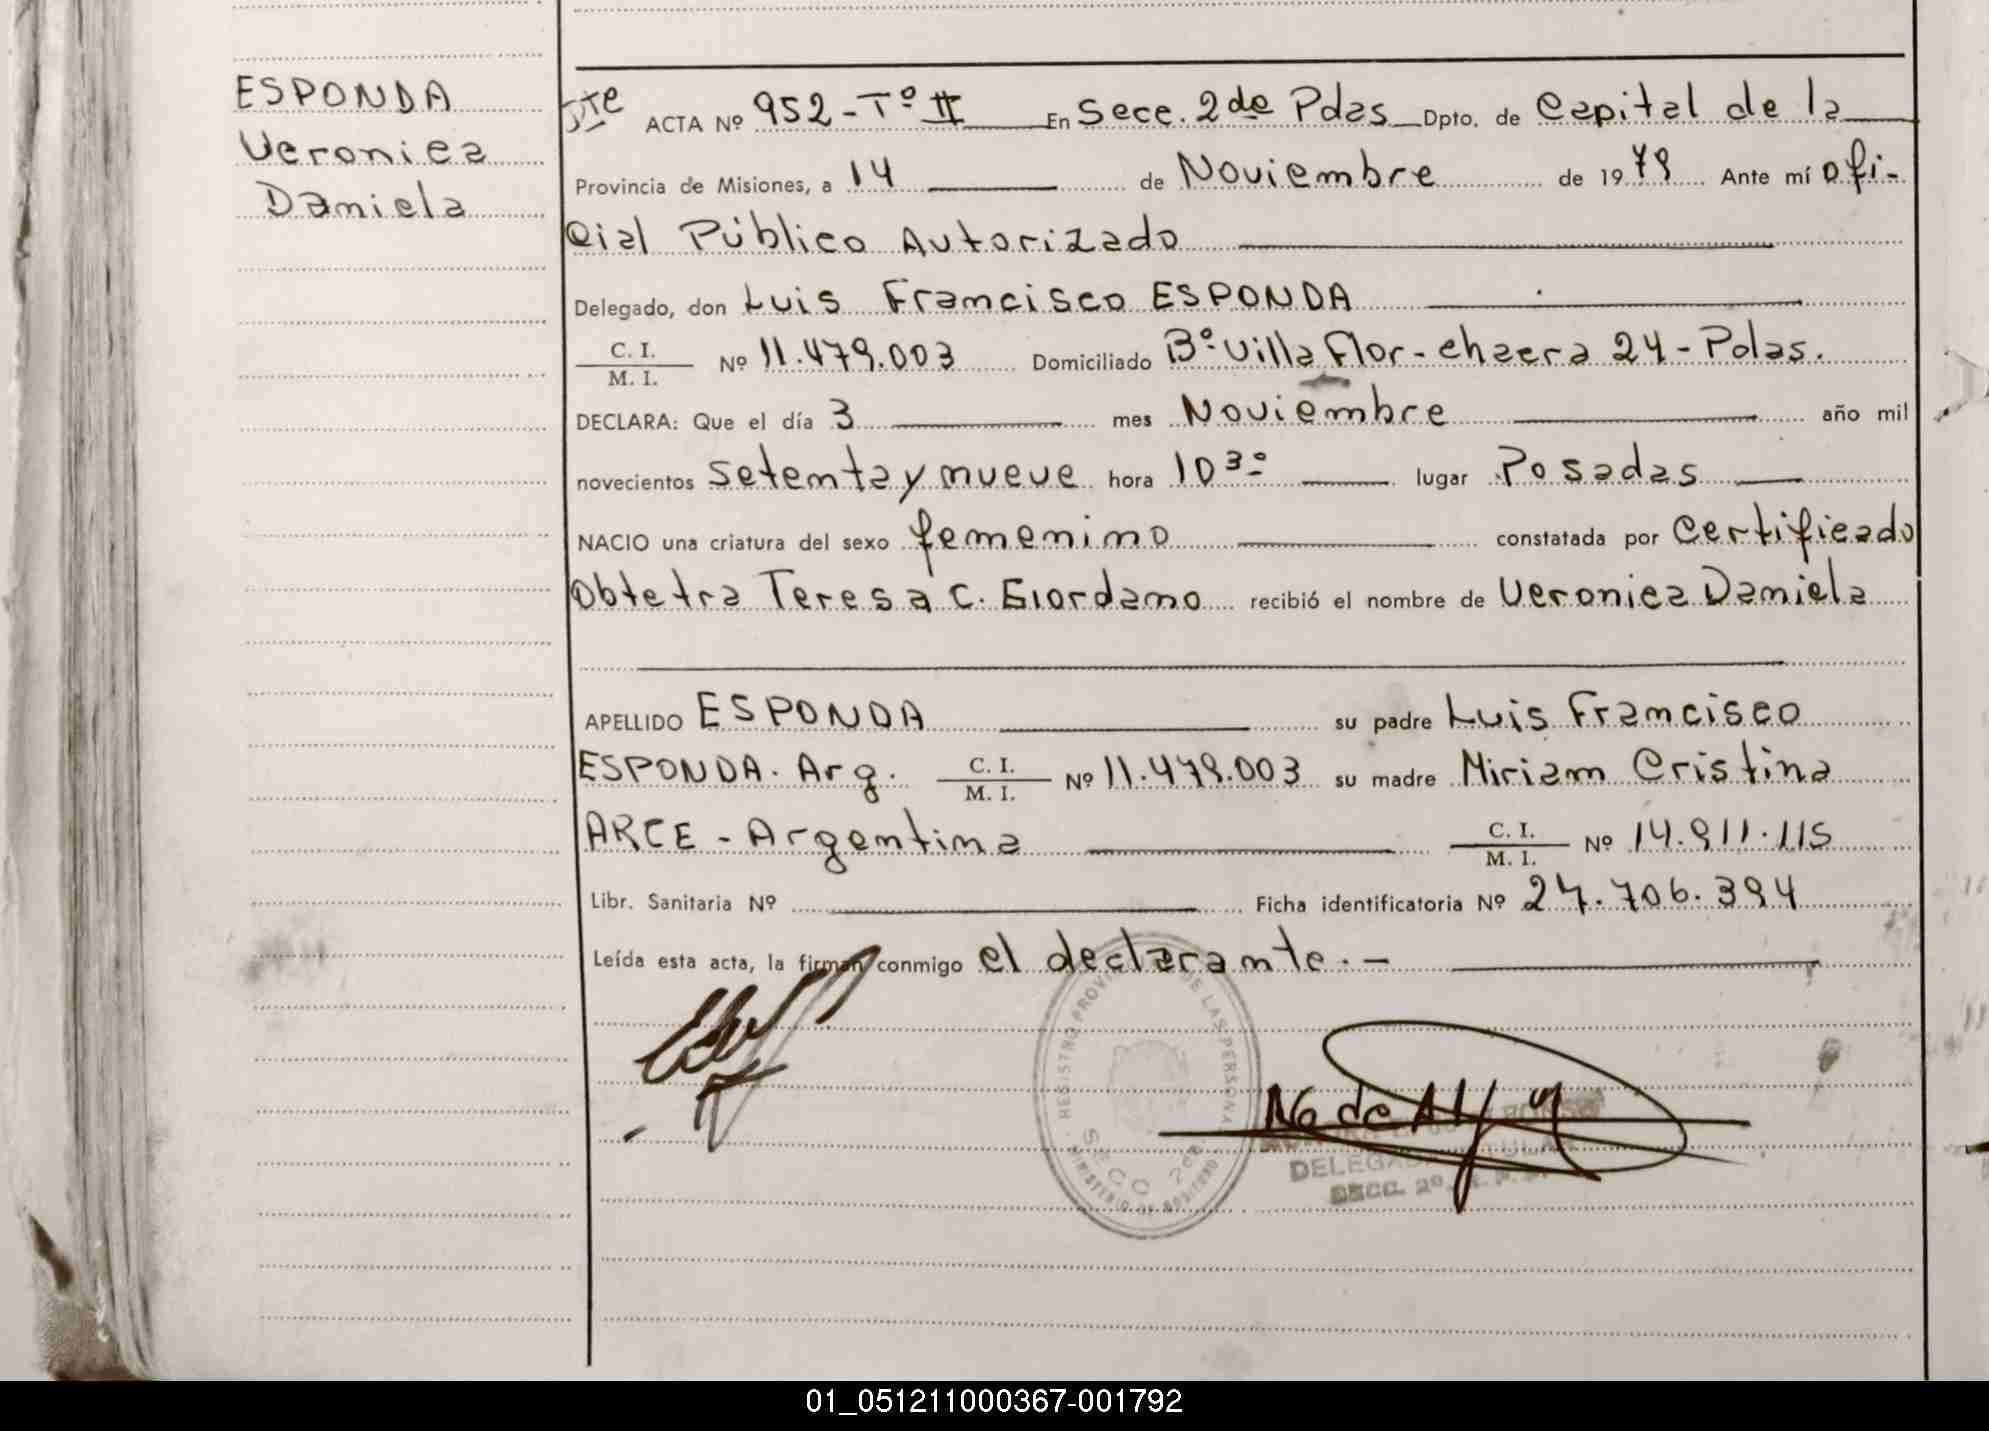 ESPONDA
Veronica
Daniela
Dte ACTA Nº 952 - Tº II En Secc. 2da Pdas Dpto. de Capital de la
Provincia de Misiones, a 14 de Noviembre de 1979 Ante mí Ofi-
cial Público Autorizado
Delegado, don Luis Francisco ESPONDA
C. I.
M. I. Nº 11.479.003 Domiciliado Bº Villa Flor - chacra 24 - Pdas.
DECLARA: Que el día 3 mes Noviembre año mil
novecientos setenta y nueve hora 10 30 lugar Posadas
NACIO una criatura del sexo femenino constatada por Certificado
Obtetra Teresa C. Giordano recibió el nombre de Veronica Daniela
APELLIDO ESPONDA su padre Luis Francisco
ESPONDA. Arg. C. I.
M. I. Nº 11.479.003 su madre Miriam Cristina
ARCE - Argentina C. I.
M. I. Nº 14.911.115
Libr. Sanitaria Nº Ficha identificatoria Nº 27.706.394
Leída esta acta, la firman conmigo el declarante. -
REGISTRO PROV DE LAS PERSONAS
SECC 2da
MINISTERIO DE GOBIERNO
DELEGADA TITULAR
SECC. 2º
01_051211000367-001792